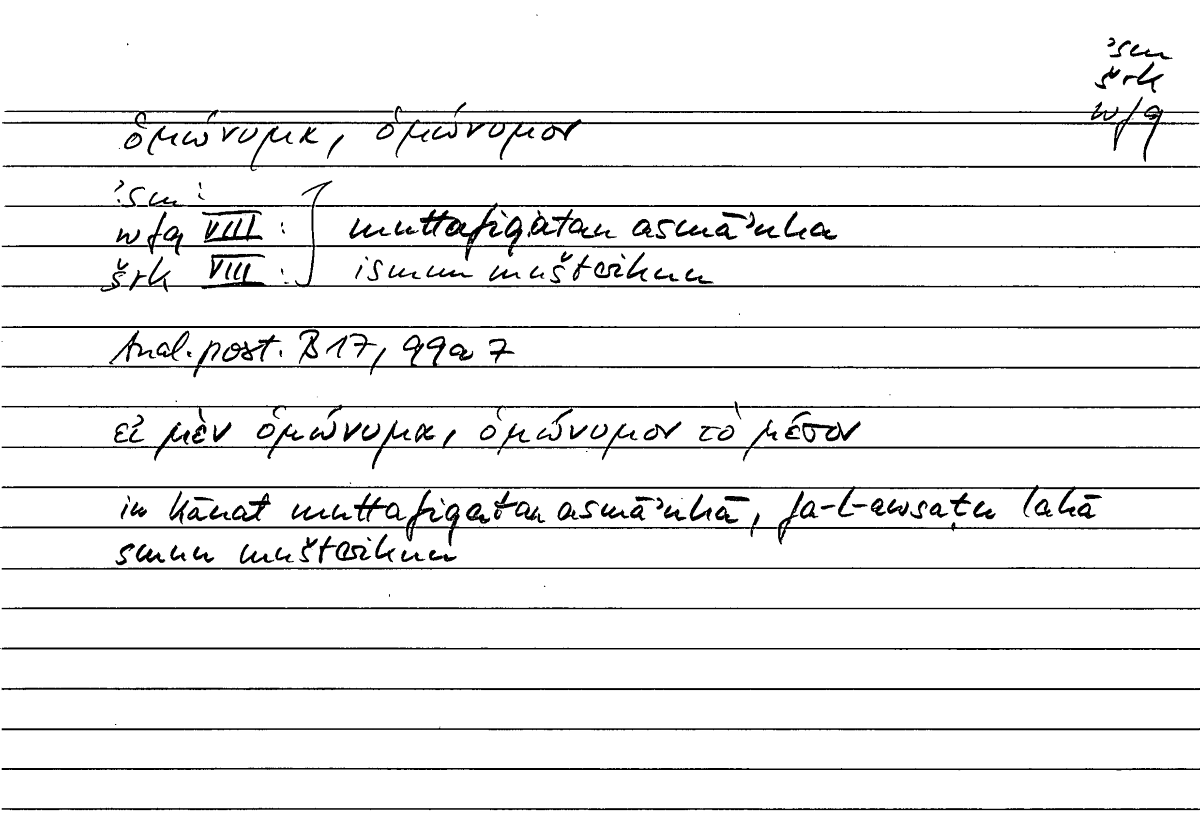 ʾsm
šrk
wfq
ὁμώνυμα, ὁμώνυμον
ʾsm :
wfq VIII :
muttafiqatan asmāʾuha
šrk VIII :
ismun muštarikun
Anal. post. B 17, 99a 7
εἰ μὲν ὁμώνυμα, ὁμώνυμον τὸ μέσον
in kānat muttafiqatan asmāʾuhā, fa-l-awsaṭu lahā
smun muštarikun